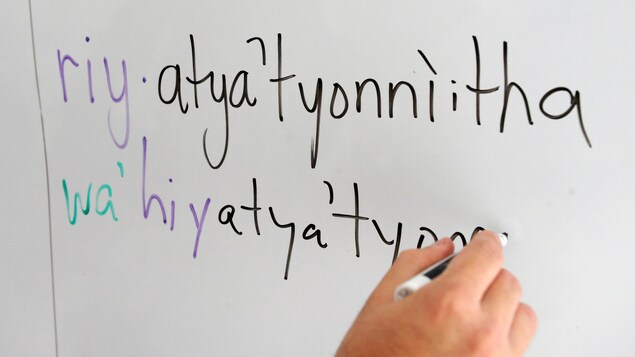 riy·atya'tyonnì:tha
wa'hiyatya'tyonn